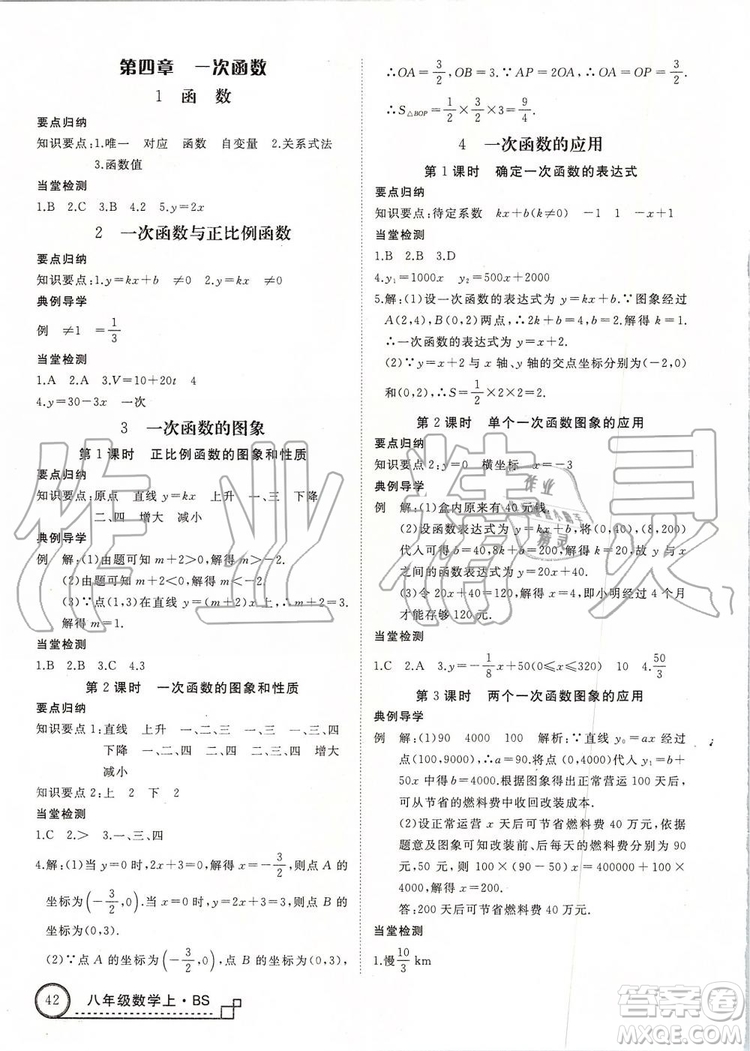 第四章　一次函数
1　函　数
要点归纳
知识要点:1.唯一　对应　函数　自变量　2.关系式法
3.函数值
当堂检测
1.B　2.C　3.A　4.2　5.y=2x
2　一次函数与正比例函数
要点归纳
知识要点:1.y=kx+b　≠0　2.y=kx　≠0
典例导学
例　≠1　=1/3
当堂检测
1.A　2.A　3.V=10+20t　4
4.y=30x　一次
3　一次函数的图象
第1课时　正比例函数的图象和性质
要点归纳
知识要点:原点　直线 y=kx　上升　一、三　下降
二、四　增大　减小
典例导学
例　解:(1)由题可知 m+2>0,解得 m>-2.
(2)由题可知 m+2<0,解得 m<-2.
(3)∵点(1,3)在直线 y=(m+2)x 上,∴m+2=3.
解得 m=1.
当堂检测
1.B　2.B　3.C　4.3
第2课时　一次函数的图象和性质
要点归纳
知识要点1:直线　上升　一、二、三　一、三　一、三、四
下降　一、二、四　二、四　二、三、四　增大
减小
知识要点2:上　2　下　2
当堂检测
1.C　2.>　3.一、三、四
4.解:(1)当 y=0时,2x+3=0,解得 x=-3/2,则点A的
坐标为(-3/2,0).当 x=0时,y=3,则点B的坐标为
(0,3).
(2)∵点A的坐标为(-3/2,0),点B的坐标为(0,3),
∴OA=3/2,OB=3.∵AP=2OA,∴OP=OA=3/2.
∴S△BOP=1/2×3/2×3=9/4.
4　一次函数的应用
第1课时　确定一次函数的表达式
要点归纳
知识要点:待定系数　kx+b(k≠0)　-1　1　-x+1
当堂检测
1.B　2.B　3.D
4.y₁=1000x　y₂=500x+2000
5.解:(1)设一次函数的表达式为 y=kx+b.∵图象经过
A(2,4),B(0,2)两点,∴2k+b=4,b=2,则k=1.
∴一次函数的表达式为 y=x+2.
(2)∵y=x+2与x轴、y轴的交点坐标分别为(-2,0)
和(0,2),∴S=1/2×2×2=2.
第2课时　单个一次函数图象的应用
要点归纳
知识要点2:y=0　横坐标　x=-3
典例导学
例　解:(1)盒内原来有40元钱.
(2)设函数表达式为 y=kx+b,将(0,40),(8,200)
代入可得 b=40,200=8k+b.∴k=20.∴y与x之
间的函数表达式为 y=20x+40.
(3)令20x+40=120,解得 x=4,即小明经过4个月
才能存够120元.
当堂检测
1.C　2.A　3.y=-1/8x+50(0≤x≤400)　4.50/3
第3课时　两个一次函数图象的应用
典例导学
例　解:(1)90　4000　100　解析:∵直线 y₀=ax 过点
(100,9000),∴y₀=90x.∵直线 y₁=kx+b 过点
(0,4000),(100,9000),∴y₁=50x+4000.∴b=
4000.根据图象可知,改装后的正常营运100天后,可
从节省的燃料费中收回改装成本.
(2)设正常运营x天后可节省燃料费40万元,依据
题意及图象可知改装前、后的燃料费每天分别为90
元,50元,则100×(90-50)x=400000+400000.
解得 x=200.
答:200天后可节省燃料费40万元.
当堂检测
1.慢 10/3 km
42　八年级数学上·BS
作业精灵
作业
精灵
答案圈
MXQE.COM